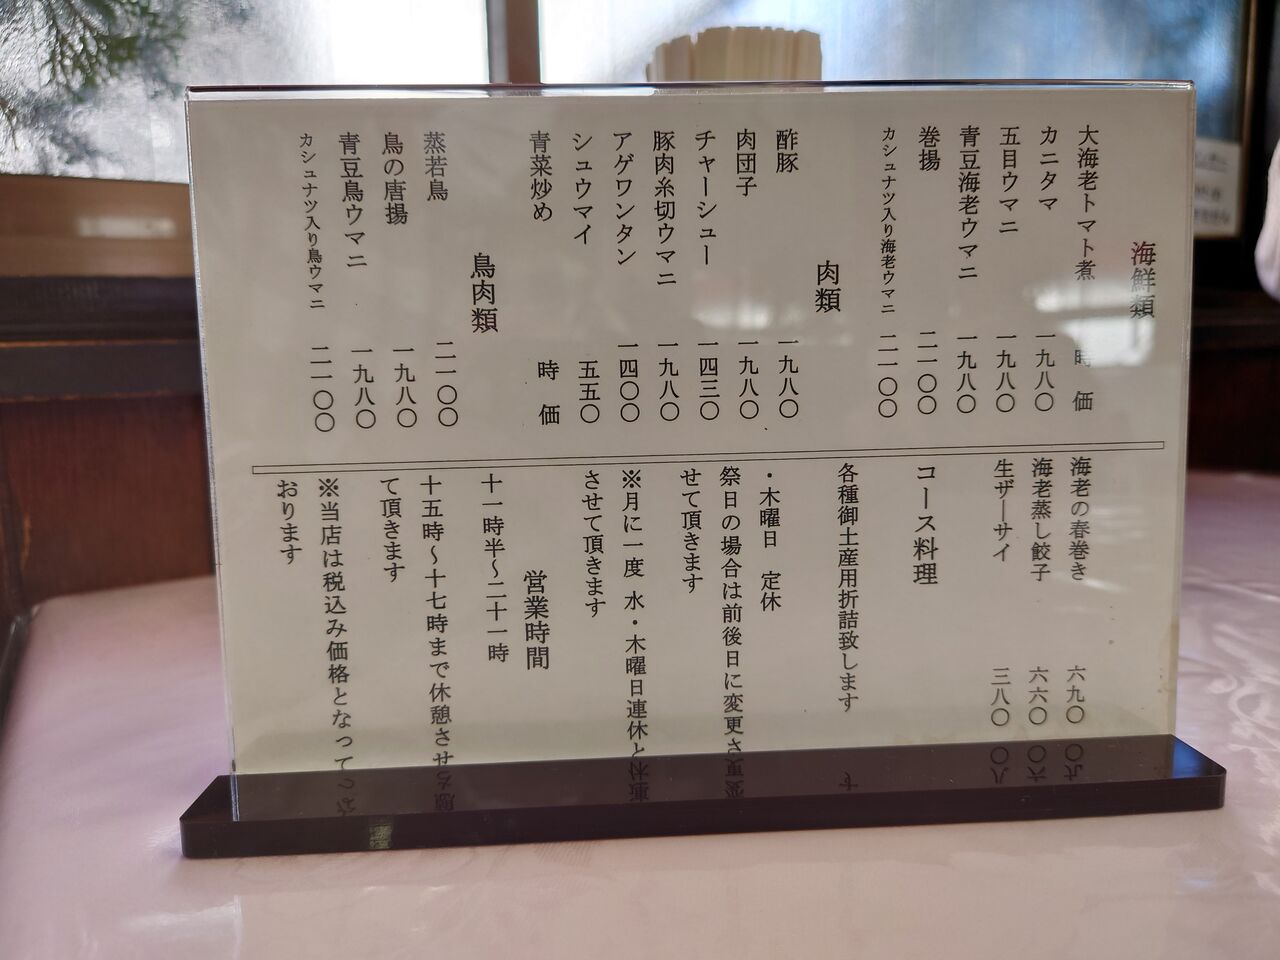 海鮮類
大海老トマト煮 時価
カニタマ 一九八〇
五目ウマニ 一九八〇
青豆海老ウマニ 一九八〇
巻揚 二一〇〇
カシュナツ入り海老ウマニ 二一〇〇
肉類
酢豚 一九八〇
肉団子 一九八〇
チャーシュー 一四三〇
豚肉糸切ウマニ 一九八〇
アゲワンタン 一四〇〇
シュウマイ 五五〇
青菜炒め 時価
鳥肉類
蒸若鳥 二一〇〇
鳥の唐揚 一九八〇
青豆鳥ウマニ 一九八〇
カシュナツ入り鳥ウマニ 二一〇〇
海老の春巻き 六九〇
海老蒸し餃子 六六〇
生ザーサイ 三八〇
コース料理
各種御土産用折詰致します
・木曜日 定休
祭日の場合は前後日に変更さ
せて頂きます
※月に一度 水・木曜日連休と
させて頂きます
営業時間
十一時半～二十一時
十五時～十七時まで休憩させ
て頂きます
※当店は税込み価格となって
おります